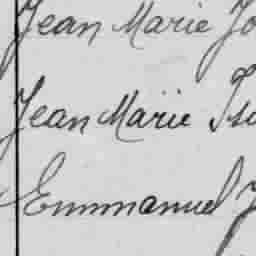 Jean Marie
Jean Marie
Emmanuel